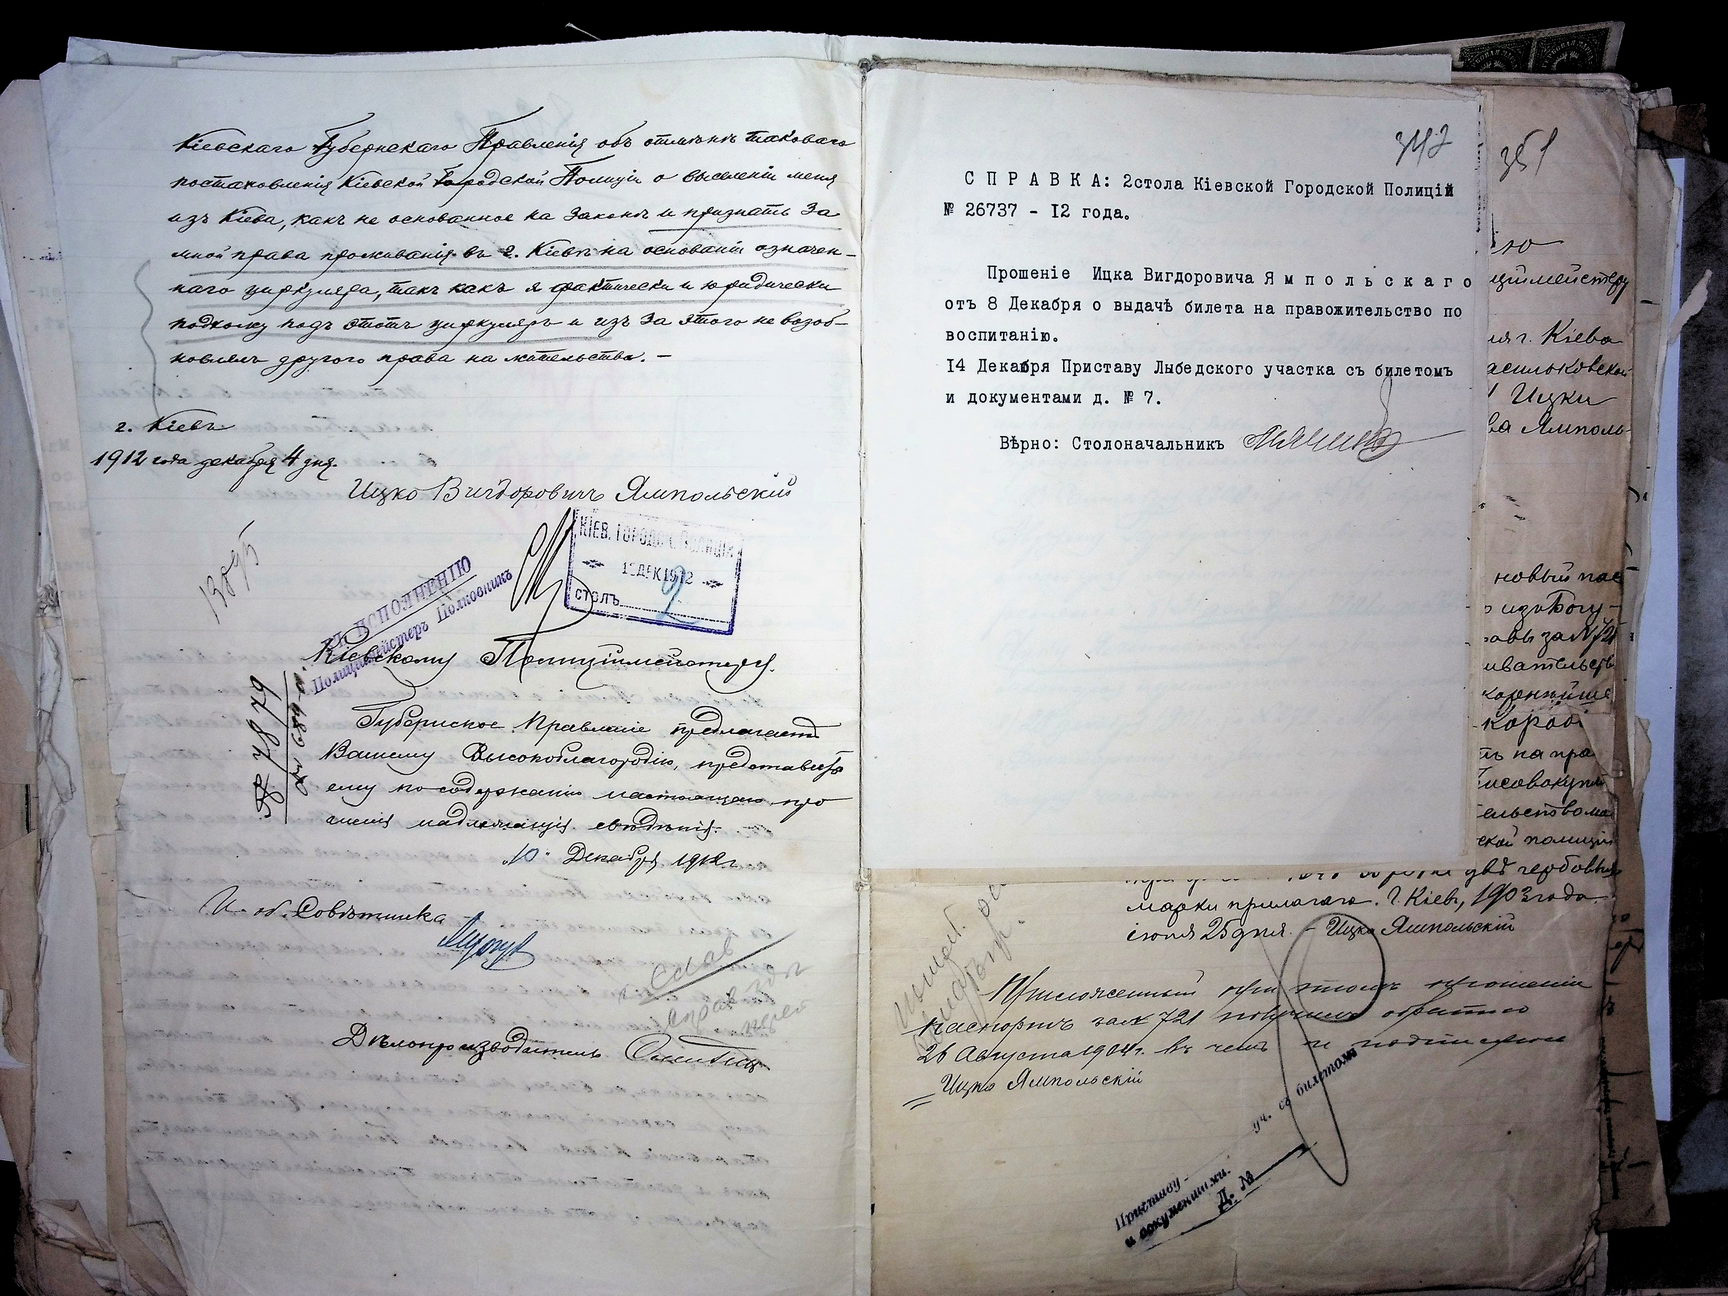 Кіевскаго Губернскаго Правленія объ отмѣнѣ таковаго
постановленія Кіевской Городской Полиціи о выселеніи меня
изъ Кіева, какъ не основанное на Законѣ и признать За
мной права проживанія въ г. Кіевѣ на основаніи означен-
наго циркуляра, такъ какъ я фактически и юридически
подхожу подъ этотъ циркуляръ и изъ За этого не возоб-
новлялъ другого права на жительство. —
г. Кіевъ
1912 года декабря 4 дня.
Ицко Вигдоровичъ Ямпольскій
КІЕВ. ГОРОДС. ПОЛИЦІЯ
ДЕК 1912
СТОЛЪ 2
КЪ ИСПОЛНЕНІЮ
Полицмейстеръ Полковникъ
Кіевскому Полицмейстеру.
Губернское Правленіе предлагаетъ
Вашему Высокоблагородію, представить
ему по содержанію настоящаго про
шенія надлежащія свѣдѣнія.
10 Декабря 1912 г.
И. об. Совѣтника
Дѣлопроизводитель
342
С П Р А В К А: 2стола Кіевской Городской Полицій
№ 26737 - I2 года.
Прошеніе Ицка Вигдоровича Я м п о л ь с к а г о
отъ 8 Декабря о выдачѣ билета на правожительство по
воспитанію.
I4 Декабря Приставу Лыбедского участка съ билетомъ
и документами д. № 7.
Вѣрно: Столоначальникъ
351
ня г. Кіева
Ицки
ва Ямполь
новый пас
на пра
ской полиціи
двѣ гербовыя
марки прилагаю. Г. Кіевъ, 1903 года
іюня 25 дня. – Ицко Ямпольскій
Приложенный при этомъ прошеніи
паспортъ за № 721 получилъ обратно
26 Августа 1904 г. въ чемъ и подписуюсь
Ицко Ямпольскій
Приставу уч. съ билетомъ
и документами.
Д. №